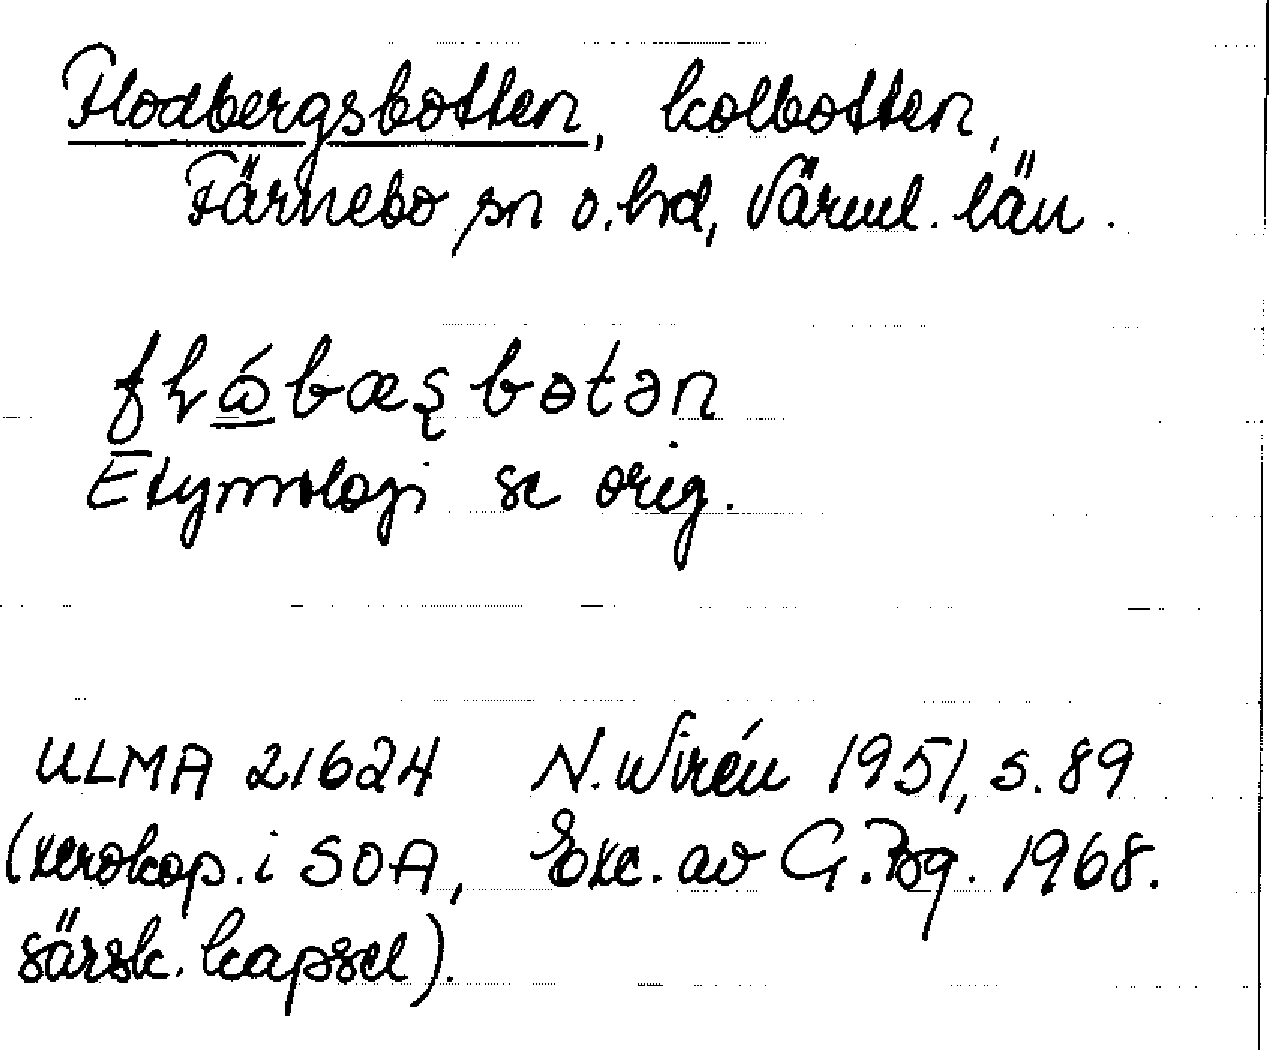 Flodbergsbotten, kolbotten,
Färnebo sn o. hd, Värml. län.
fɫώbæʂbɵtən
Etymologi se orig.
ULMA 21624 N. Wirén 1951, s. 89
(xerokop. i SOA, Exc. av G. Bg. 1968.
särsk. kapsel).